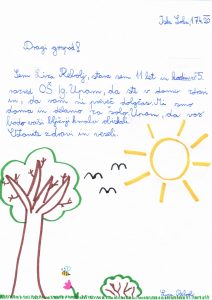 Dragi gospe!
Sem Liza Rebolj, stara sem 11 let in hodim v 5.
razred OŠ Ig. Upam, da ste v domu zdravi
in, da vam ni preveč dolgčas. Mi smo
doma in delamo za šolo. Upam, da vas
bodo vaši bližnji kmalu obiskali.
Ostanite zdravi in veseli.
Liza Rebolj